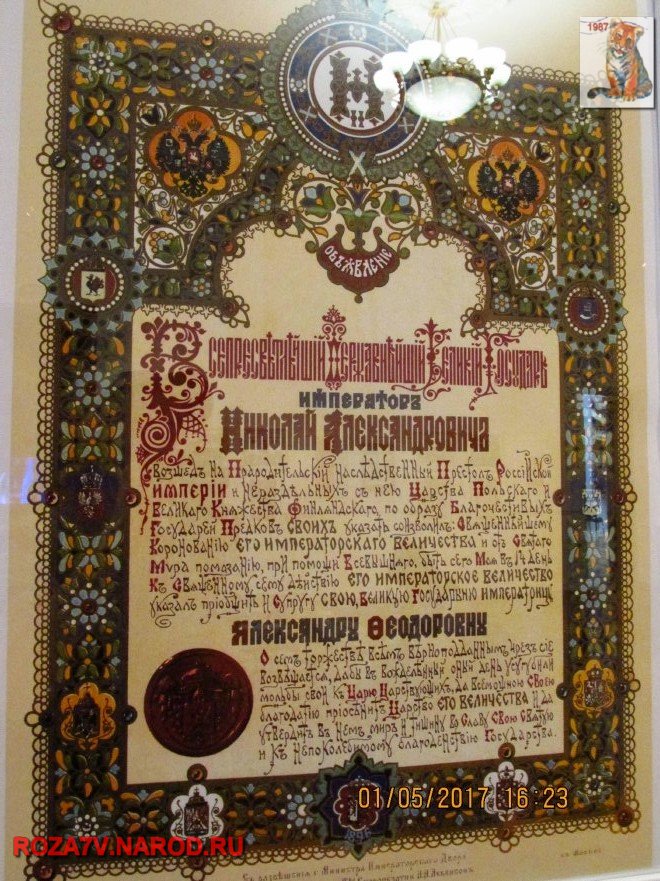 1987
ОБЪѦВЛЕНІЕ
ВСЕПРЕСВѢТЛѢЙШІЙ ДЕРЖАВНѢЙШІЙ ВЕЛИКІЙ ГОСУДАРЬ
ИМПЕРАТОРЪ
НИКОЛАЙ АЛЕКСАНДРОВИЧЪ
ВОЗШЕДЪ НА ПРАРОДИТЕЛЬСКІЙ НАСЛѢДСТВЕННЫЙ ПРЕСТОЛЪ РОССІЙСКОЙ
ИМПЕРІИ И НЕРАЗДѢЛЬНЫХЪ СЪ НЕЮ ЦАРСТВА ПОЛЬСКАГО И
ВЕЛИКАГО КНЯЖЕСТВА ФИНЛЯНДСКАГО, ПО ОБРАЗУ БЛАГОЧЕСТИВЫХЪ
ГОСУДАРЕЙ ПРЕДКОВЪ СВОИХЪ УКАЗАТЬ СОИЗВОЛИЛЪ: СВЯЩЕННѢЙШЕМУ
КОРОНОВАНІЮ ЕГО ИМПЕРАТОРСКАГО ВЕЛИЧЕСТВА И ОТЪ СВЯТАГО
МѴРА ПОМАЗАНІЮ, ПРИ ПОМОЩИ ВСЕВЫШНЯГО, БЫТЬ СЕГО МАЯ ВЪ ДЕНЬ
КЪ СВЯЩЕННОМУ СЕМУ ДѢЙСТВІЮ ЕГО ИМПЕРАТОРСКОЕ ВЕЛИЧЕСТВО
УКАЗАЛЪ ПРІОБЩИТЬ И СУПРУГУ СВОЮ, ВЕЛИКУЮ ГОСУДАРЫНЮ ИМПЕРАТРИЦУ
АЛЕКСАНДРУ ѲЕОДОРОВНУ
О СЕМЪ ТОРЖЕСТВѢ ВСѢМЪ ВѢРНОПОДДАННЫМЪ ЧРЕЗЪ СІЕ
ВОЗВѢЩАЕТСЯ, ДАБЫ ВЪ ВОЖДЕЛѢННЫЙ ОНЫЙ ДЕНЬ УСУГУБИЛИ
МОЛЬБЫ СВОИ КЪ ЦАРЮ ЦАРСТВУЮЩИХЪ, ДА ВСЕМОЩНОЮ СВОЕЮ
БЛАГОДАТІЮ ПРІОСѢНИТЪ ЦАРСТВО ЕГО ВЕЛИЧЕСТВА И ДА
УТВЕРДИТЪ ВЪ НЕМЪ МИРЪ И ТИШИНУ ВО СЛАВУ СВОЮ СВЯТУЮ
И КЪ НЕПОКОЛЕБИМОМУ БЛАГОДЕНСТВІЮ ГОСУДАРСТВА.
01/05/2017 16:23
ROZA7V.NAROD.RU
Съ разрѣшенія г. Министра Императорскаго Двора